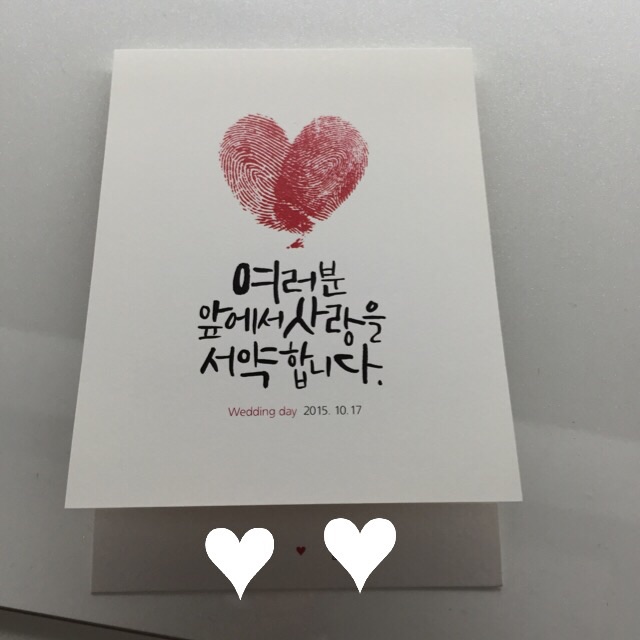 여러분
앞에서 사랑을
서약합니다.
Wedding day 2015. 10. 17